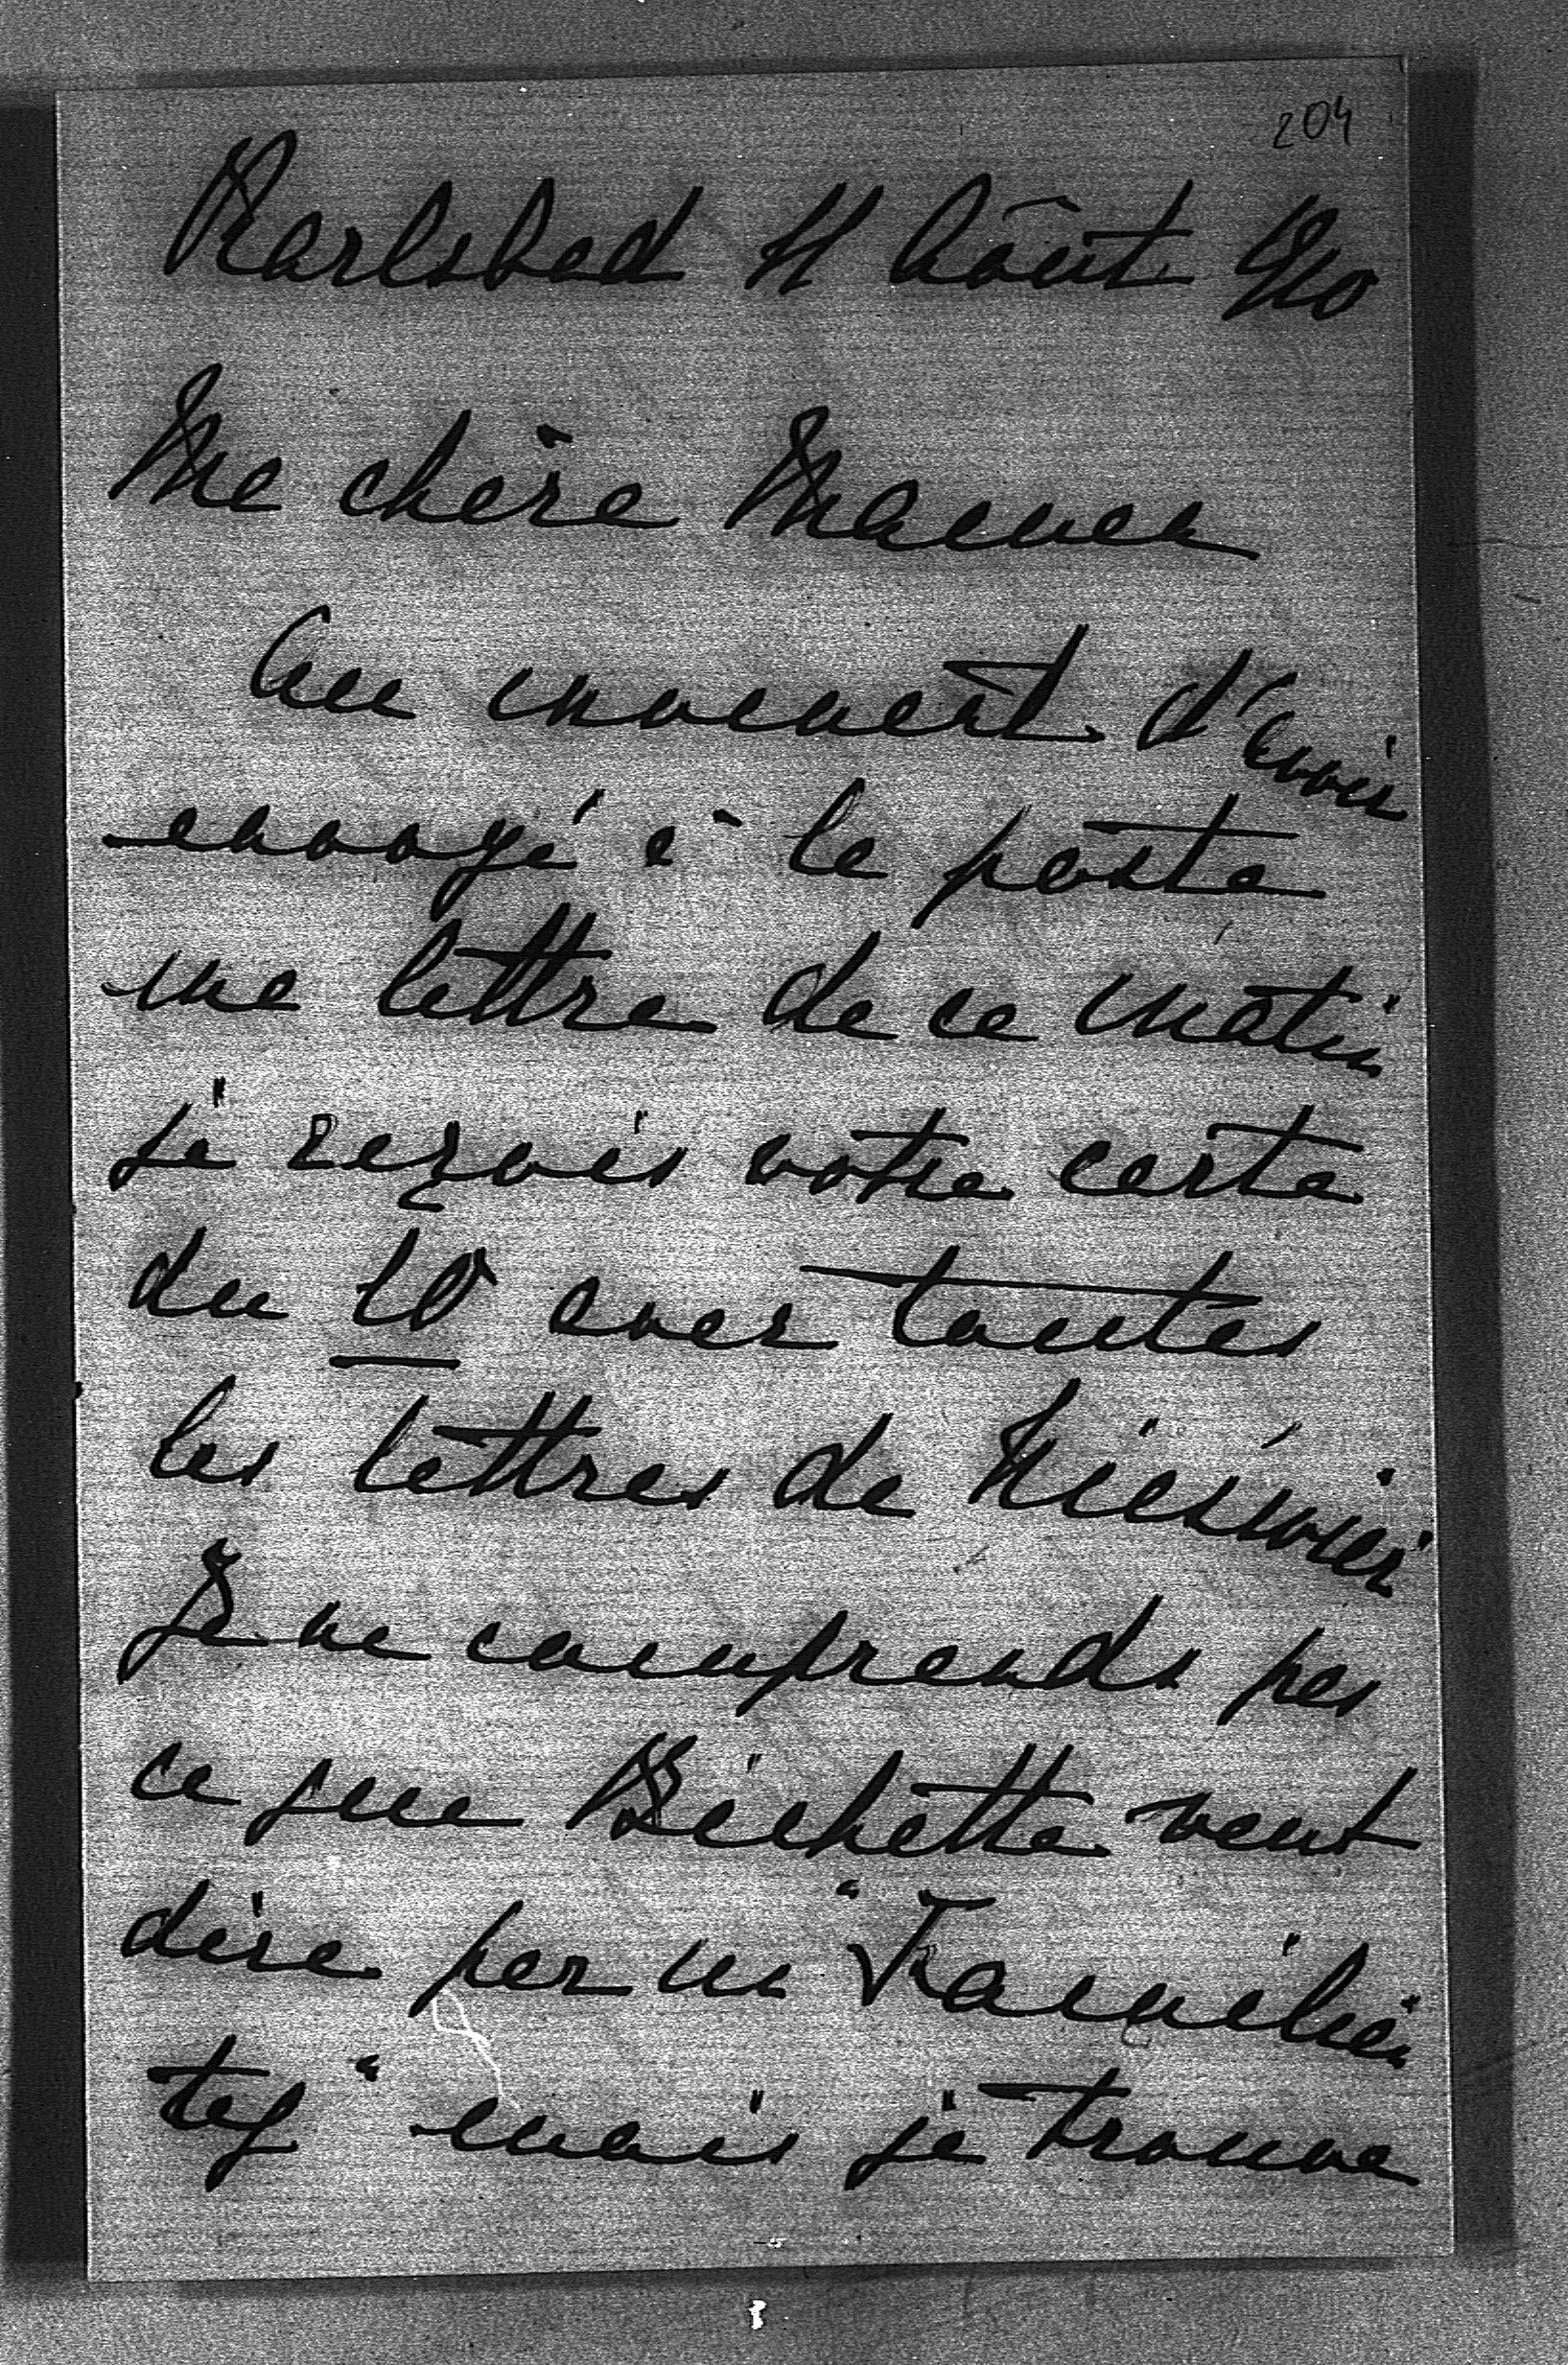 204
Karlsbad 11 Août 910
Ma chère Maman
Au moment d'avoir
envoyé à la poste
ma lettre de ce matin
je reçois votre carte
du 10 avec toutes
les lettres de Niéswiez
Je ne comprends pas
ce que Bichette veut
dire par un "Familien
tag" mais je trouve